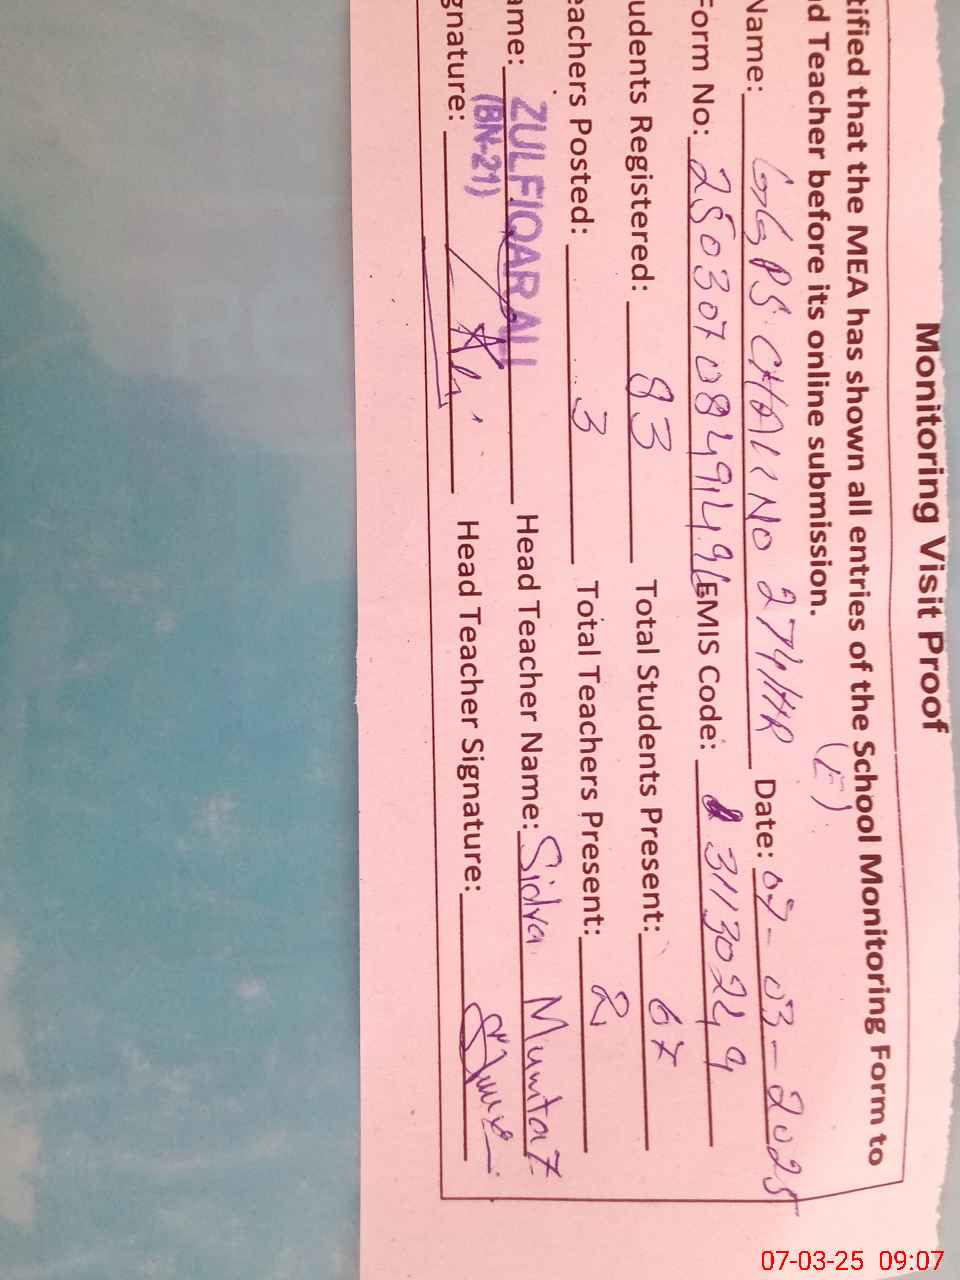 Monitoring Visit Proof
tified that the MEA has shown all entries of the School Monitoring Form to
d Teacher before its online submission.
(E)
Name: GGPS CHAK NO 274/HR Date: 07-03-2025
Form No: EMIS Code: 31130249
udents Registered: 83 Total Students Present: 67
eachers Posted: 3 Total Teachers Present: 2
ame: ZULFIQAR ALI Head Teacher Name: Sidra Mumtaz
(BN-21)
gnature: Head Teacher Signature:
07-03-25 09:07